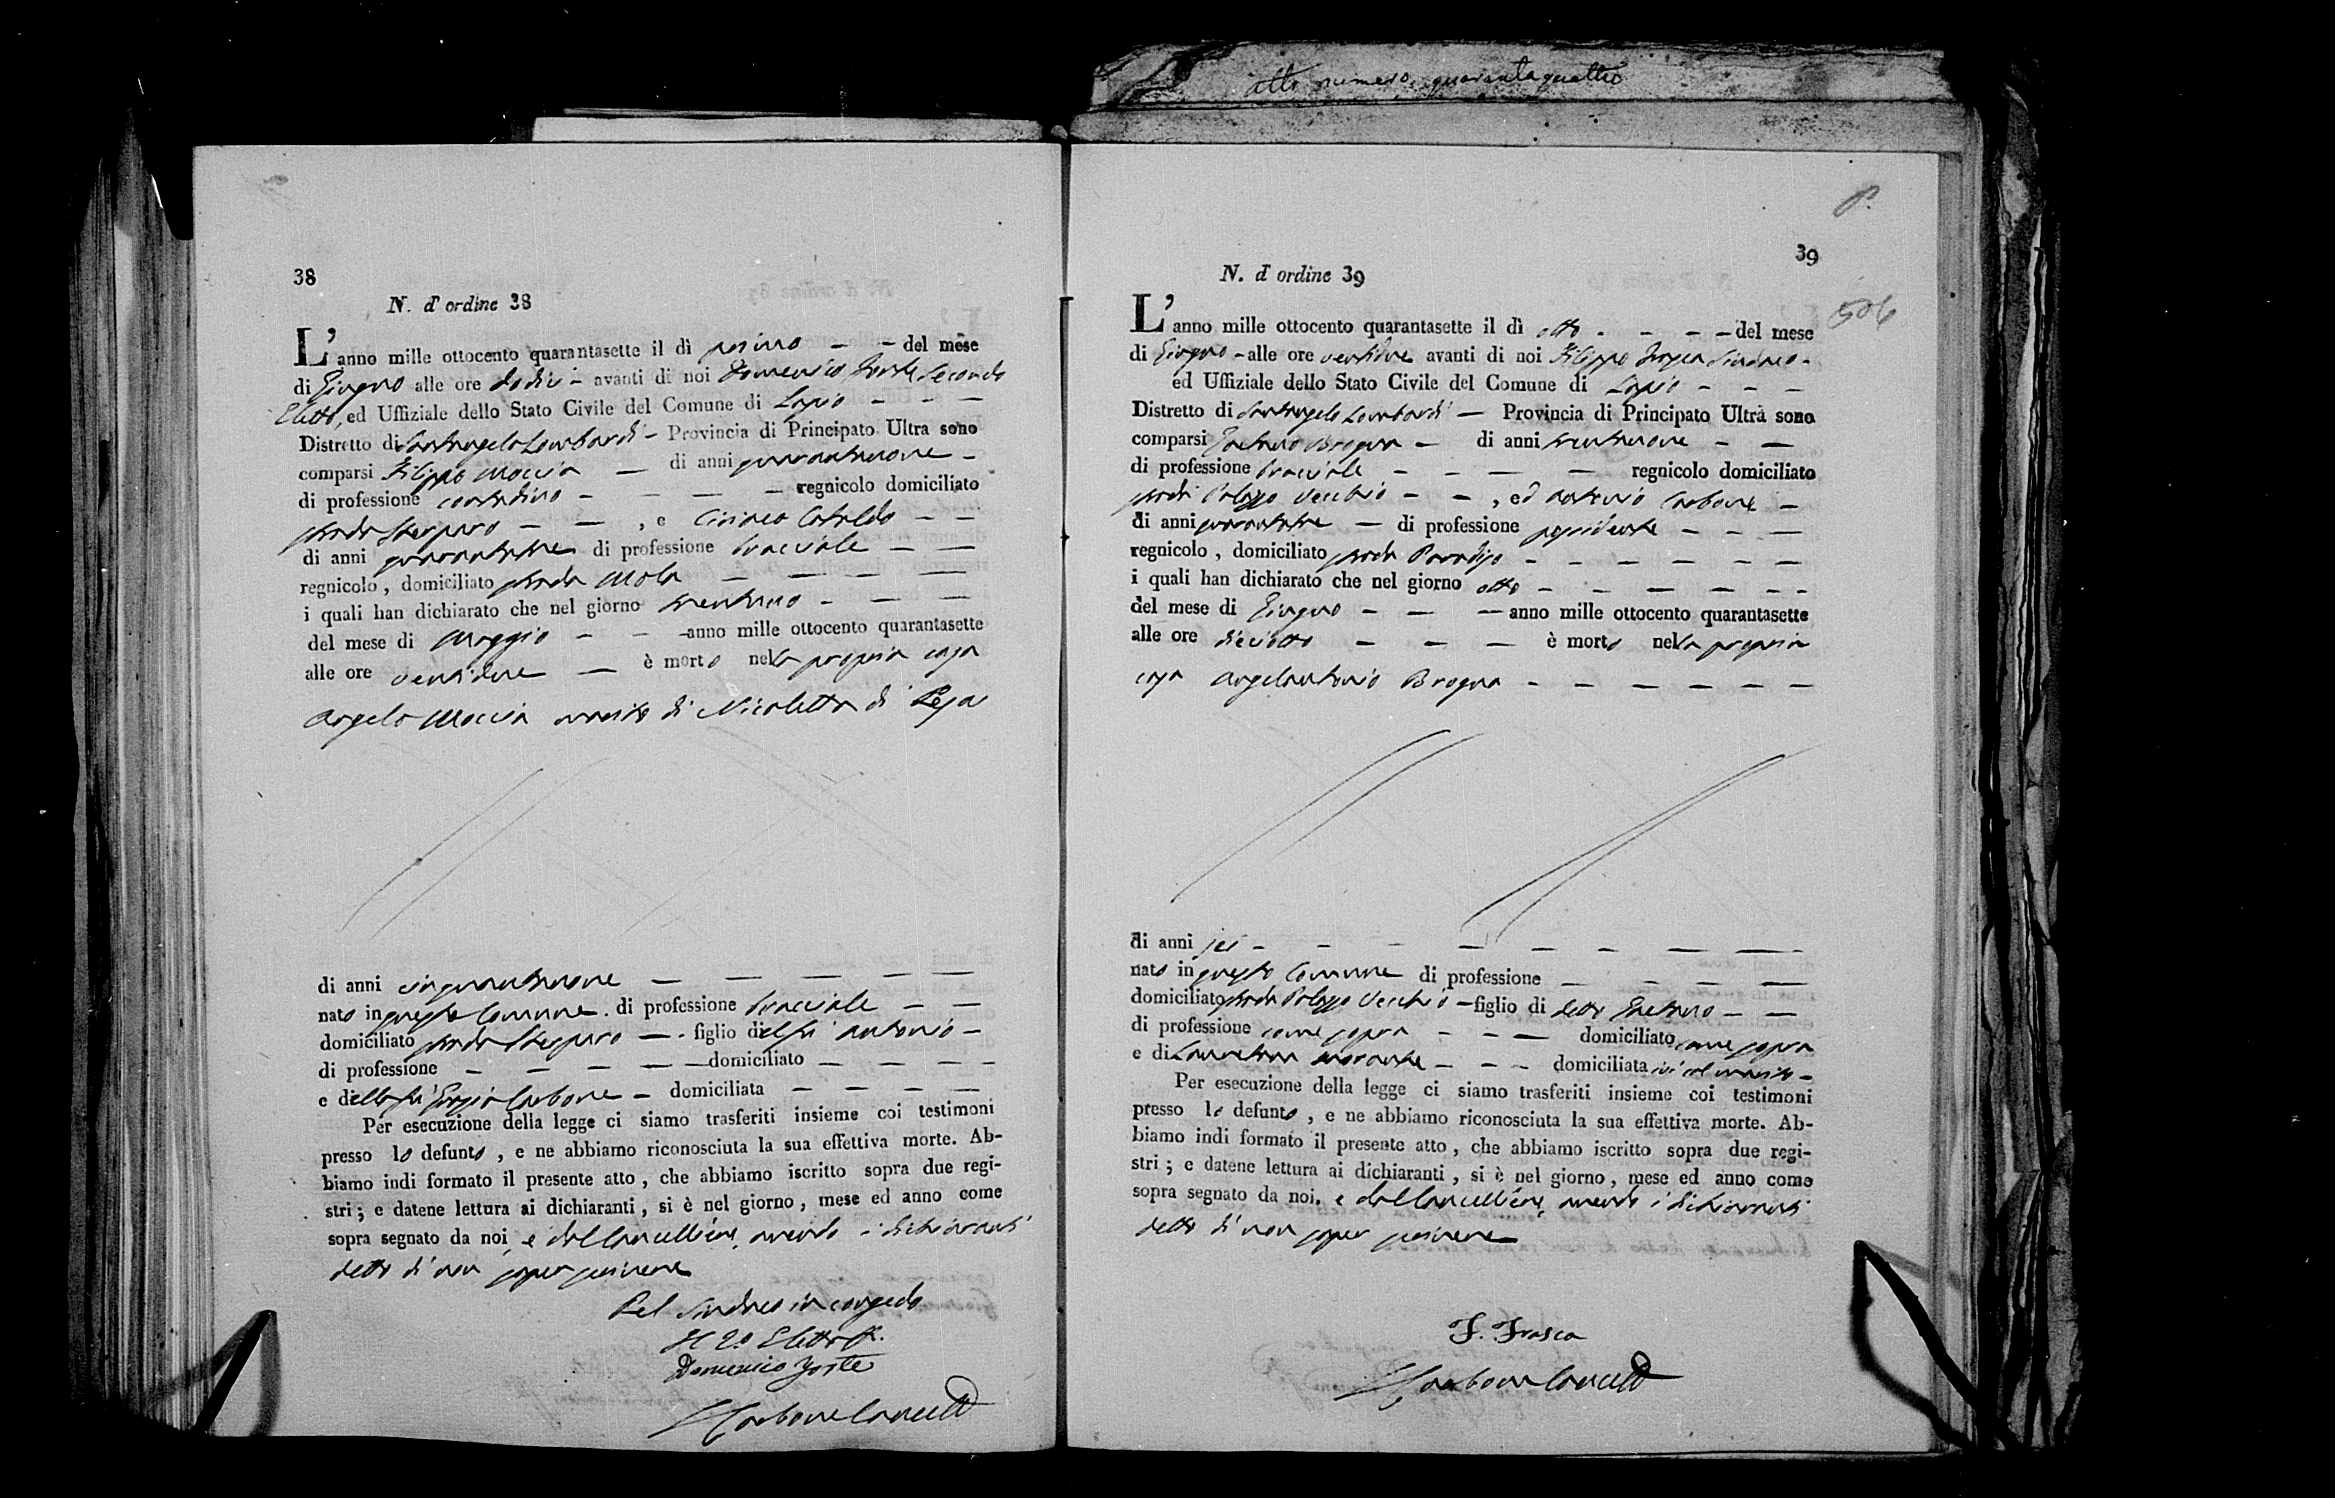 atto numero quarantaquattro
38
N. d'ordine 38
L'anno mille ottocento quarantasette il dì primo — — del mese
di Giugno alle ore dodici — avanti di noi Domenico Joste Secondo
Eletto, ed Uffiziale dello Stato Civile del Comune di Lapio — — —
Distretto di Santangelo Lombardi — Provincia di Principato Ultra sono
comparsi Filippo Moccia — di anni quarantanove —
di professione contadino — — — — regnicolo domiciliato
strada Sterparo — — , e Ciriaco Cataldo — —
di anni quarantatre di professione bracciale — —
regnicolo , domiciliato strada Mola — — — —
i quali han dichiarato che nel giorno trentuno — — —
del mese di Maggio — — — anno mille ottocento quarantasette
alle ore ventidue — è morto nella propria casa
Angelo Moccia marito di Nicoletta di Rosa
di anni cinquantanove — — — — —
nato in questo Comune . di professione bracciale — —
domiciliato strada Sterparo — . figlio del fu Antonio —
di professione — — — — — domiciliato — — — —
e della fu Carbone — domiciliata — — — —
Per esecuzione della legge ci siamo trasferiti insieme coi testimoni
presso lo defunto , e ne abbiamo riconosciuta la sua effettiva morte. Ab-
biamo indi formato il presente atto , che abbiamo iscritto sopra due regi-
stri ; e datene lettura ai dichiaranti , si è nel giorno , mese ed anno come
sopra segnato da noi, e dal Cancelliere, avendo i dichiaranti
detto di non saper scrivere
Pel Sindaco in congedo
Il 2.º Eletto ff.
Domenico Joste
Carbone Cancell
P.
39
506
N. d'ordine 39
L'anno mille ottocento quarantasette il dì otto - - - — del mese
di Giugno - alle ore ventidue avanti di noi Filippo Frasca Sindaco -
ed Uffiziale dello Stato Civile del Comune di Lapio - — —
Distretto di Santangelo Lombardi — Provincia di Principato Ultra sono
comparsi Gaetano Brogna — di anni trentanove — —
di professione bracciale — — — — regnicolo domiciliato
strada Palazzo Vecchio — — , ed Antonio Carbone —
di anni quarantatre — di professione possidente — — —
regnicolo , domiciliato strada Paradiso — — — — — —
i quali han dichiarato che nel giorno otto — — — — — —
del mese di Giugno — — — anno mille ottocento quarantasette
alle ore dieciotto — — — è morto nella propria
casa Angelantonio Brogna — — — — — —
di anni sei — — — — — — — —
nato in questo Comune di professione — — — — —
domiciliato strada Palazzo Vecchio — figlio di detto Gaetano — —
di professione come sopra — — — domiciliato come sopra
e di Morante — — — domiciliata ivi col marito —
Per esecuzione della legge ci siamo trasferiti insieme coi testimoni
presso lo defunto , e ne abbiamo riconosciuta la sua effettiva morte. Ab-
biamo indi formato il presente atto , che abbiamo iscritto sopra due regi-
stri ; e datene lettura ai dichiaranti , si è nel giorno , mese ed anno come
sopra segnato da noi, e dal Cancelliere, avendo i dichiaranti
detto di non saper scrivere
F. Frasca
Carbone Cancell